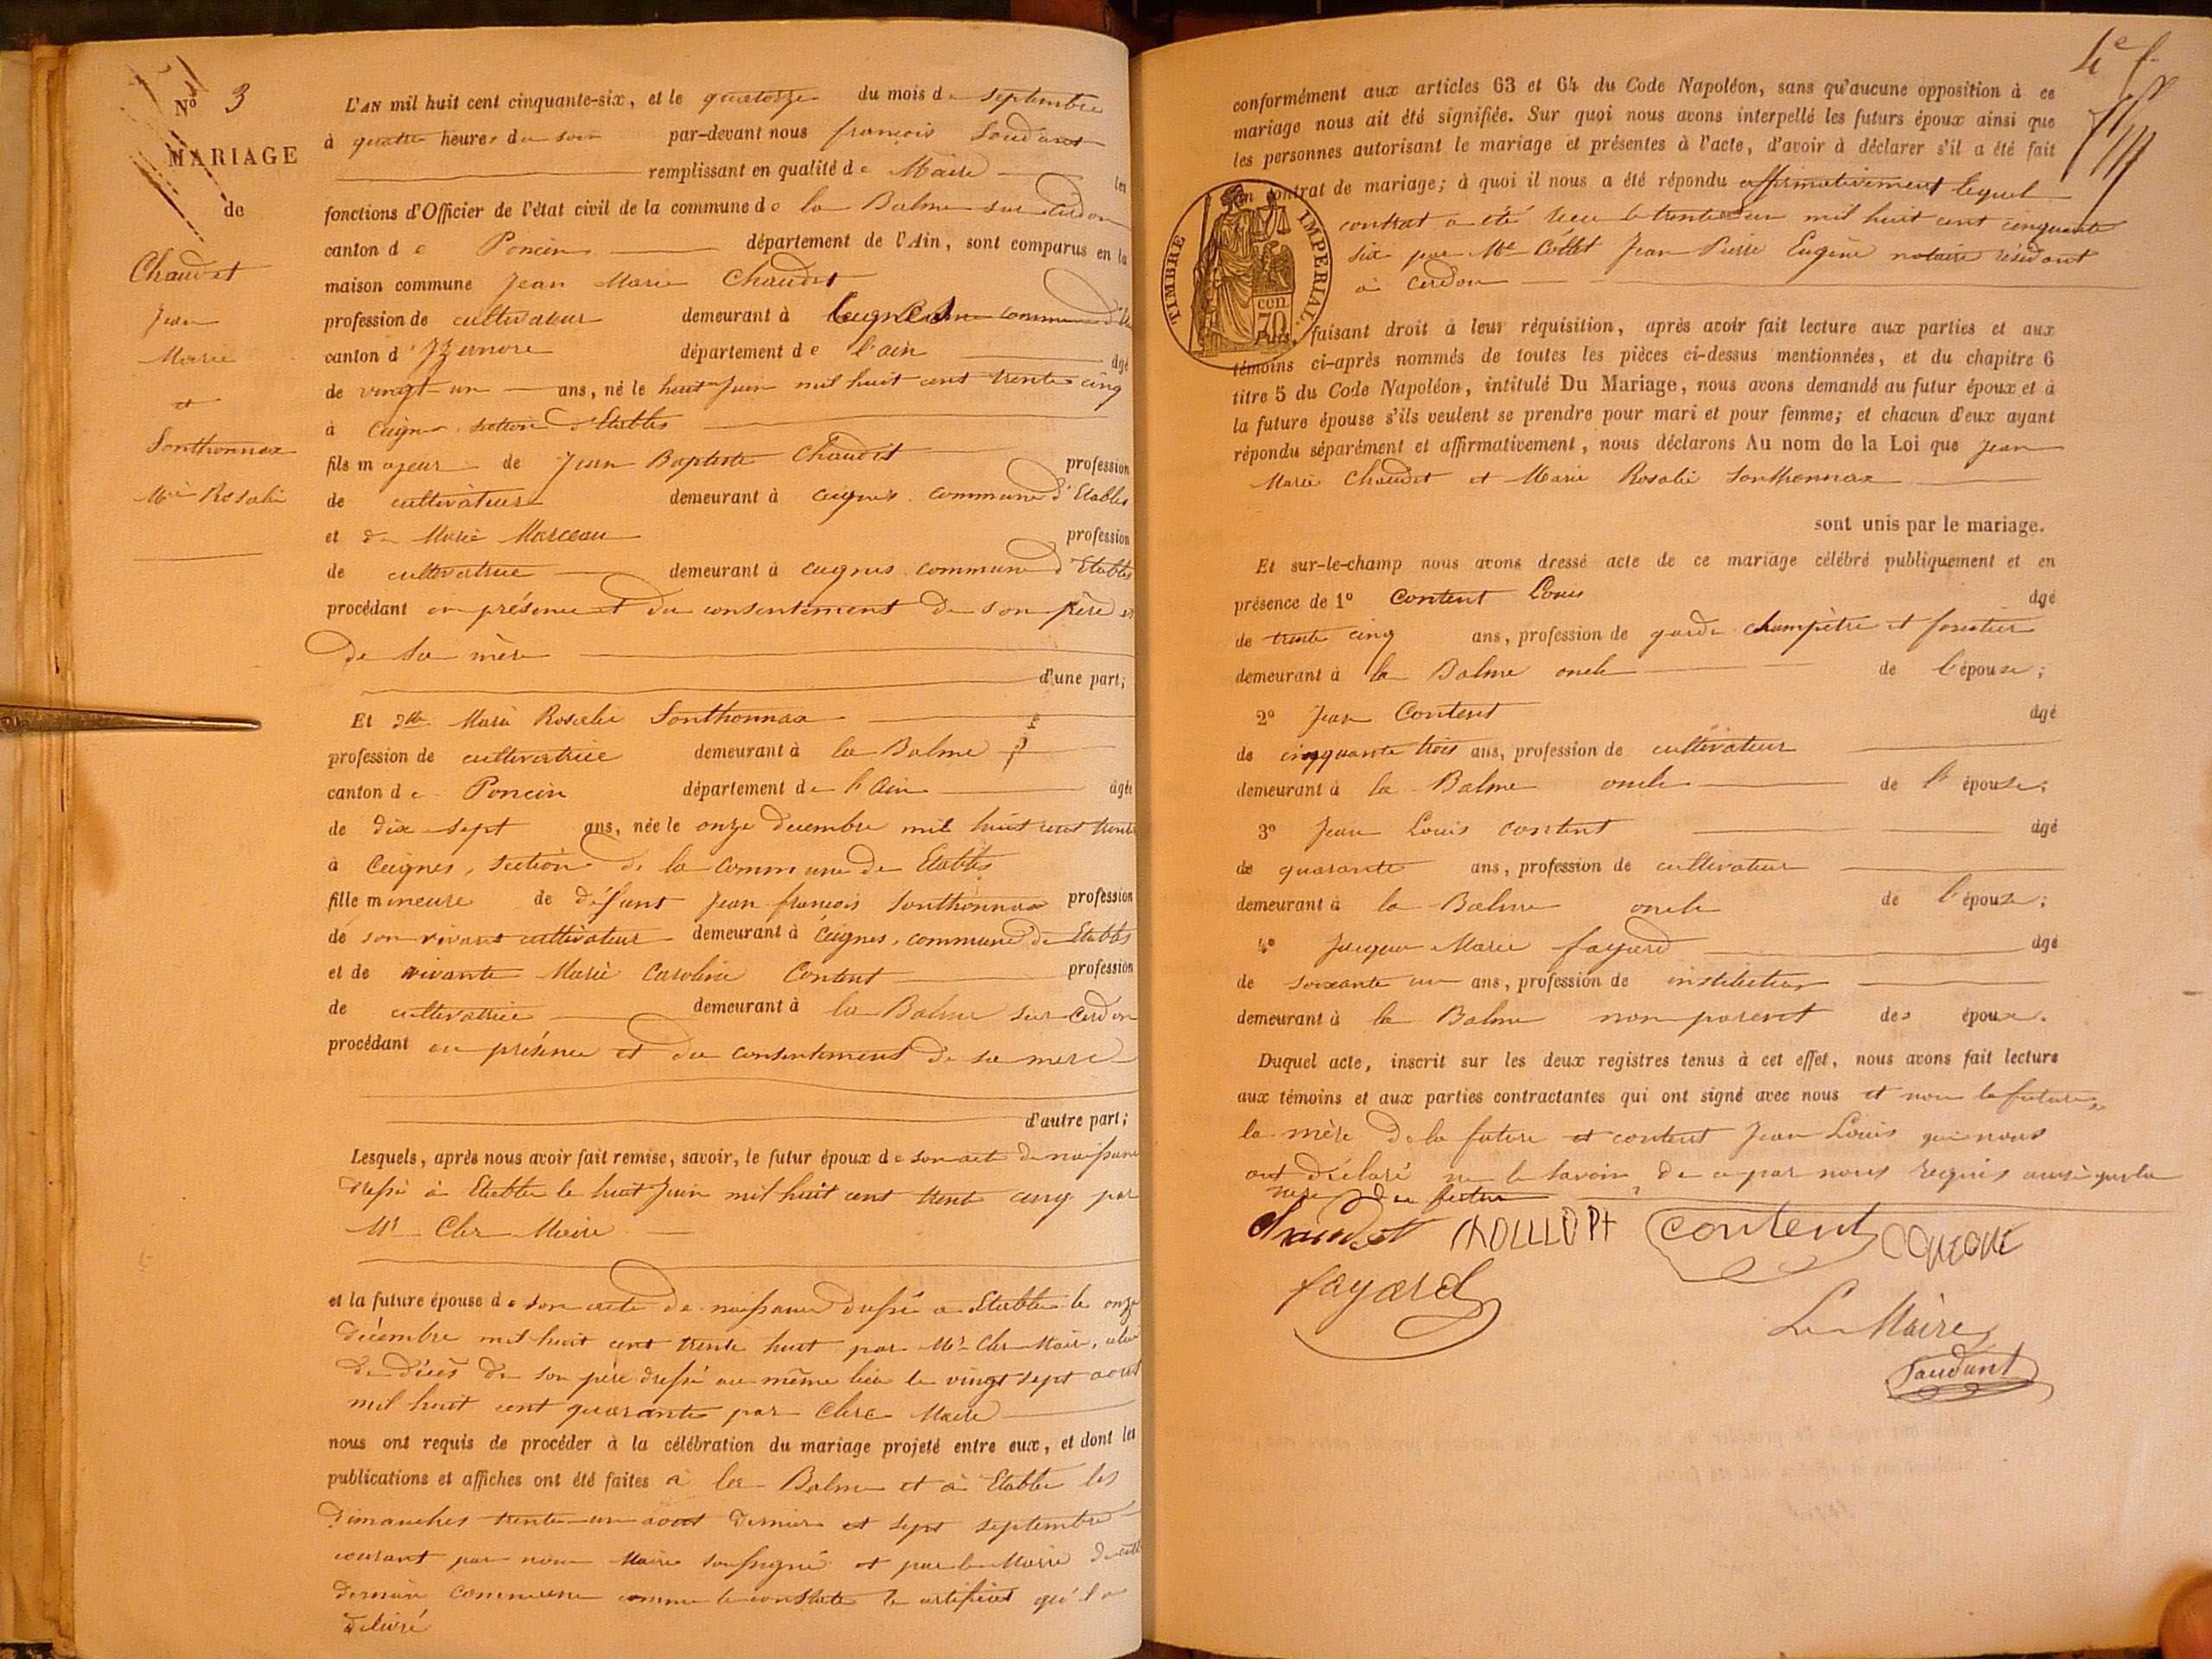 N° 3
MARIAGE
de
Chaudet
Jean
Marie
et
Sonthonnax
Mie Rosalie
L'AN mil huit cent cinquante-six, et le quatorze du mois de septembre
à quatre heures du soir par-devant nous françois Soudant
remplissant en qualité de Maire les
fonctions d'Officier de l'état civil de la commune de la Balme sur Cerdon
canton de Poncin département de l'Ain, sont comparus en la
maison commune Jean Marie Chaudet
profession de cultivateur demeurant à Ceignes commune
canton d'Izernore département de l'ain âgé
de vingt un ans, né le huit Juin mil huit cent trente cinq
à Ceignes section d'Etables
fils majeur de Jean Baptiste Chaudet profession
de cultivateur demeurant à ceignes commune d'Etables
et de Marie Marceau profession
de cultivatrice demeurant à ceignes commune d'Etables
procédant en présence et du consentement de son père et
de sa mère
d'une part;
Et Dlle Marie Rosalie Sonthonnax
profession de cultivatrice demeurant à la Balme
canton de Poncin département de l'Ain âgée
de dix-sept ans, née le onze decembre mil huit cent trente
à Ceignes, section de la commune de Etables
fille mineure de défunt Jean françois Sonthonnax profession
de son vivant cultivateur demeurant à Ceignes, commune de Etables
et de vivante Marie Caroline Content profession
de cultivatrice demeurant à la Balme sur Cerdon
procédant en présence et du consentement de sa mere
d'autre part;
Lesquels, après nous avoir fait remise, savoir, le futur époux de son acte de naissance
dressé à Etables le huit Juin mil huit cent trente cinq par
Mr Clerc Maire
et la future épouse de son acte de naissance dressé a Etables le onze
décembre mil huit cent trente huit par Mr Clerc Maire, celui
de décès de son père dressé au même lieu le vingt sept aout
mil huit cent quarante par Clerc Maire
nous ont requis de procéder à la célébration du mariage projeté entre eux, et dont les
publications et affiches ont été faites à la Balme et à Etables les
dimanches trente-un aout dernier et sept septembre
courant par nous Maire soussigné et par le Maire de cette
dernière commune comme le constate le certificat qu'il a
délivré
4e f
conformément aux articles 63 et 64 du Code Napoléon, sans qu'aucune opposition à ce
mariage nous ait été signifiée. Sur quoi nous avons interpellé les futurs époux ainsi que
les personnes autorisant le mariage et présentes à l'acte, d'avoir à déclarer s'il a été fait
un contrat de mariage; à quoi il nous a été répondu affirmativement lequel
contrat a été reçu le trente un mil huit cent cinquante
six par Me Collet Jean Pierre Eugène notaire résidant
à Cerdon
TIMBRE IMPERIAL
cen. 70
Puis, faisant droit à leur réquisition, après avoir fait lecture aux parties et aux
témoins ci-après nommés de toutes les pièces ci-dessus mentionnées, et du chapitre 6
titre 5 du Code Napoléon, intitulé Du Mariage, nous avons demandé au futur époux et à
la future épouse s'ils veulent se prendre pour mari et pour femme; et chacun d'eux ayant
répondu séparément et affirmativement, nous déclarons Au nom de la Loi que Jean
Marie Chaudet et Marie Rosalie Sonthonnax
sont unis par le mariage.
Et sur-le-champ nous avons dressé acte de ce mariage célébré publiquement et en
présence de 1° Content Louis âgé
de trente cinq ans, profession de garde champêtre et forestier
demeurant à la Balme oncle de l'épouse;
2° Jean Content âgé
de cinquante trois ans, profession de cultivateur
demeurant à la Balme oncle de l'épouse;
3° Jean Louis content âgé
de quarante ans, profession de cultivateur
demeurant à la Balme oncle de l'épouse;
4° Jacques Marie fayard âgé
de soixante un ans, profession de instituteur
demeurant à la Balme non parent des époux.
Duquel acte, inscrit sur les deux registres tenus à cet effet, nous avons fait lecture
aux témoins et aux parties contractantes qui ont signé avec nous et non la future,
la mère de la future et content Jean Louis qui nous
ont déclaré ne le savoir de ce par nous requis ainsi que la
mère du futur
Chaudet content
fayard
Le Maire
Saudant